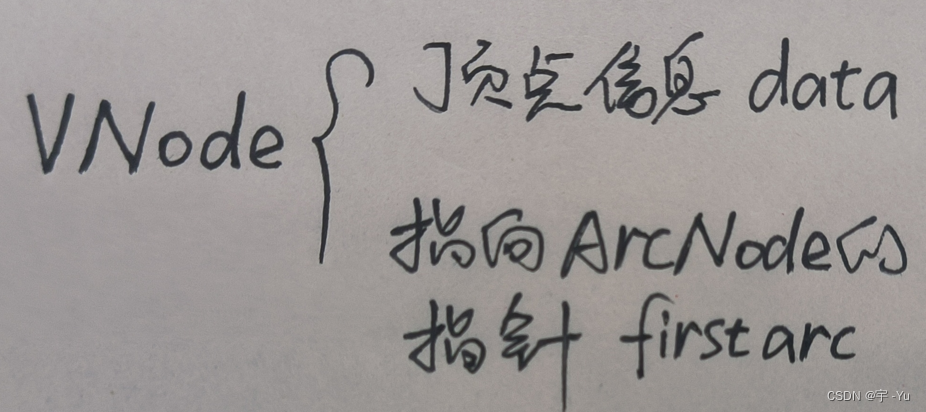 VNode { 顶点信息 data
指向ArcNode的
指针 firstarc
CSDN @宇-Yu